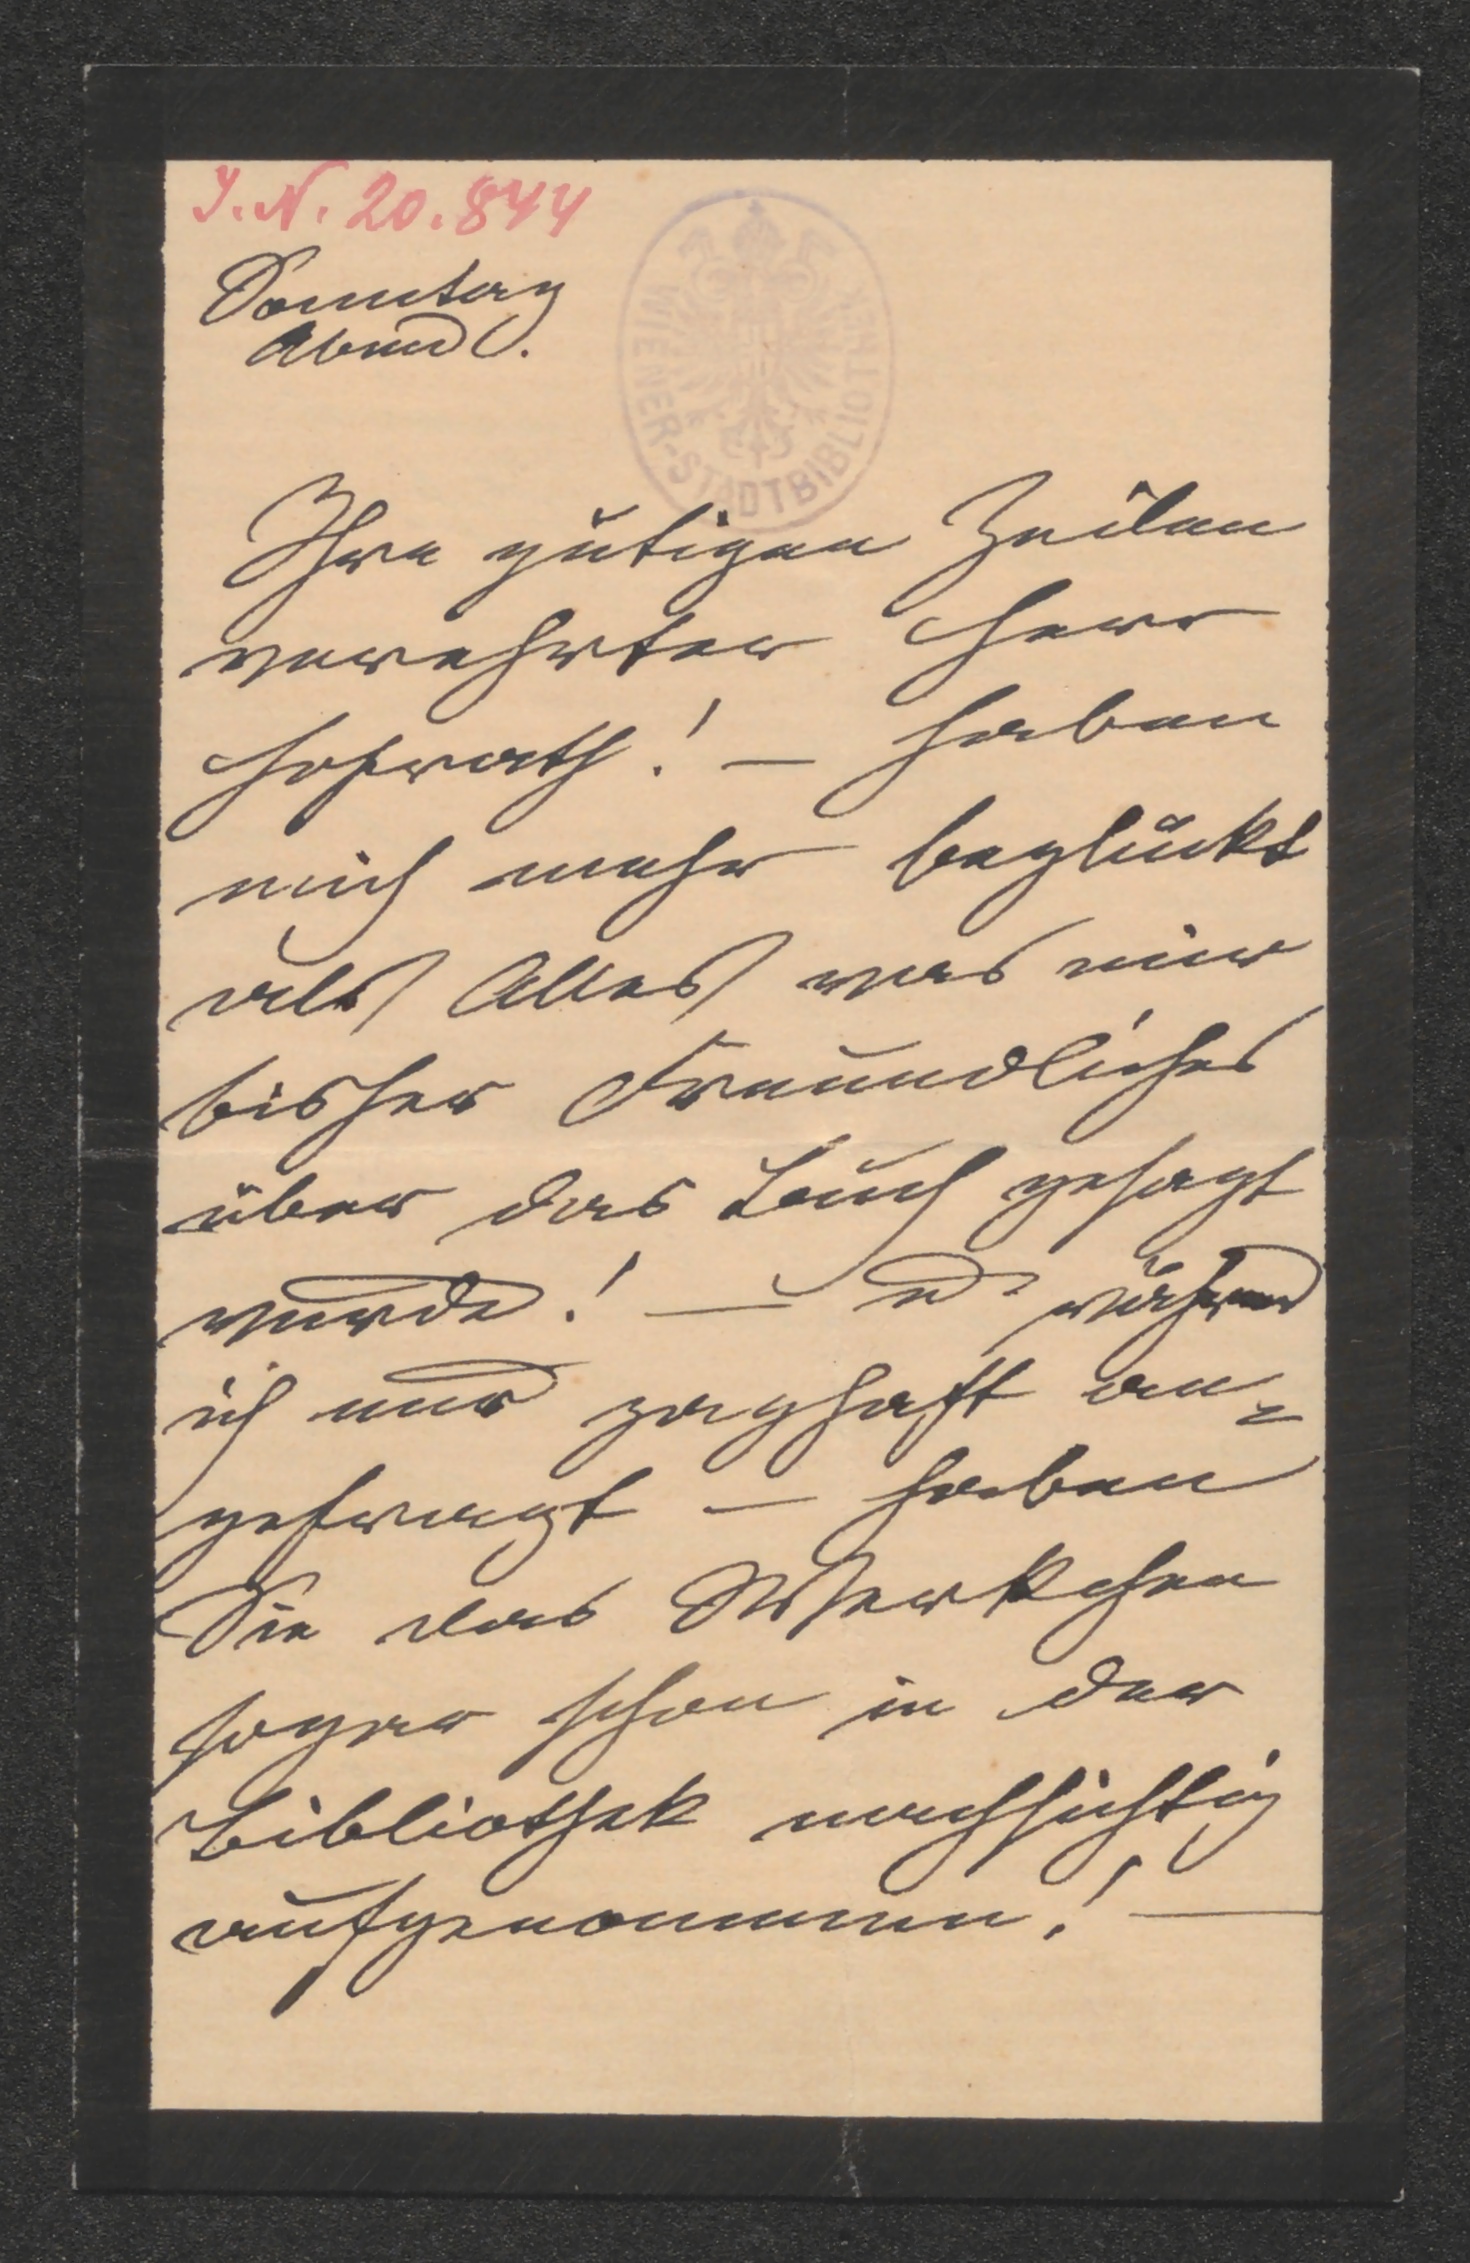 J.N. 20.844
WIENER-STADTBIBLIOTHEK
Sonntag
Abend.
Ihre gütigen Zeilen
verehrter Herr
Hofrath! – haben
mich mehr beglückt
als Alles was mir
bisher Freundliches
über das Buch gesagt
wurde! – u während
ich nur zaghaft an=
gefragt – haben
Sie das Werkchen
sogar schon in der
Bibliothek nachsichtig
aufgenommen! –